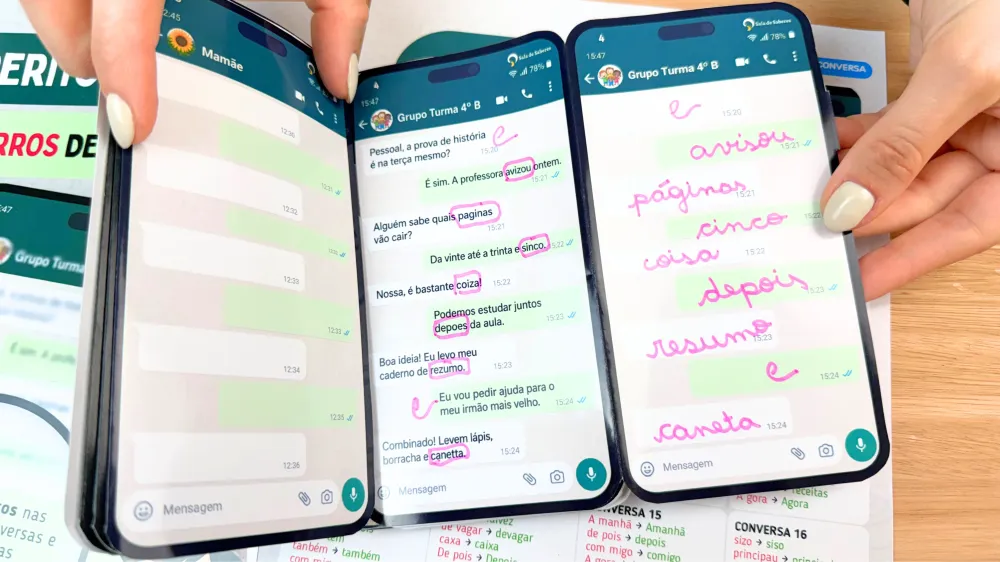 PERITO
RROS DE
:47
Grupo Turma
os nas
versas e
as
12:45
Mamãe
12:30
12:31
12:32
12:33
12:33
12:34
12:35
12:36
Mensagem
4
Sala de Saberes
15:47
78%
Grupo Turma 4º B
Pessoal, a prova de história
é na terça mesmo?
15:20
e
É sim. A professora avizou ontem.
15:21
Alguém sabe quais paginas
vão cair?
15:21
Da vinte até a trinta e sinco.
15:22
Nossa, é bastante coiza!
15:22
Podemos estudar juntos
depoes da aula.
15:23
Boa ideia! Eu levo meu
caderno de rezumo.
15:23
e
Eu vou pedir ajuda para o
meu irmão mais velho.
15:24
Combinado! Levem lápis,
borracha e canetta.
15:24
Mensagem
4
Sala de Saberes
15:47
78%
Grupo Turma 4º B
e
15:20
avisou
15:21
páginas
15:21
cinco
15:22
coisa
15:22
depois
15:23
resumo
15:23
e
15:24
caneta
15:24
Mensagem
CONVERSA
de vagar → devagar
caxa → caixa
De pois → Depois
tanbém → também
CONVERSA 15
A manhã → Amanhã
de pois → depois
com migo → comigo
receitas
A gora → Agora
CONVERSA 16
sizo → siso
principau →